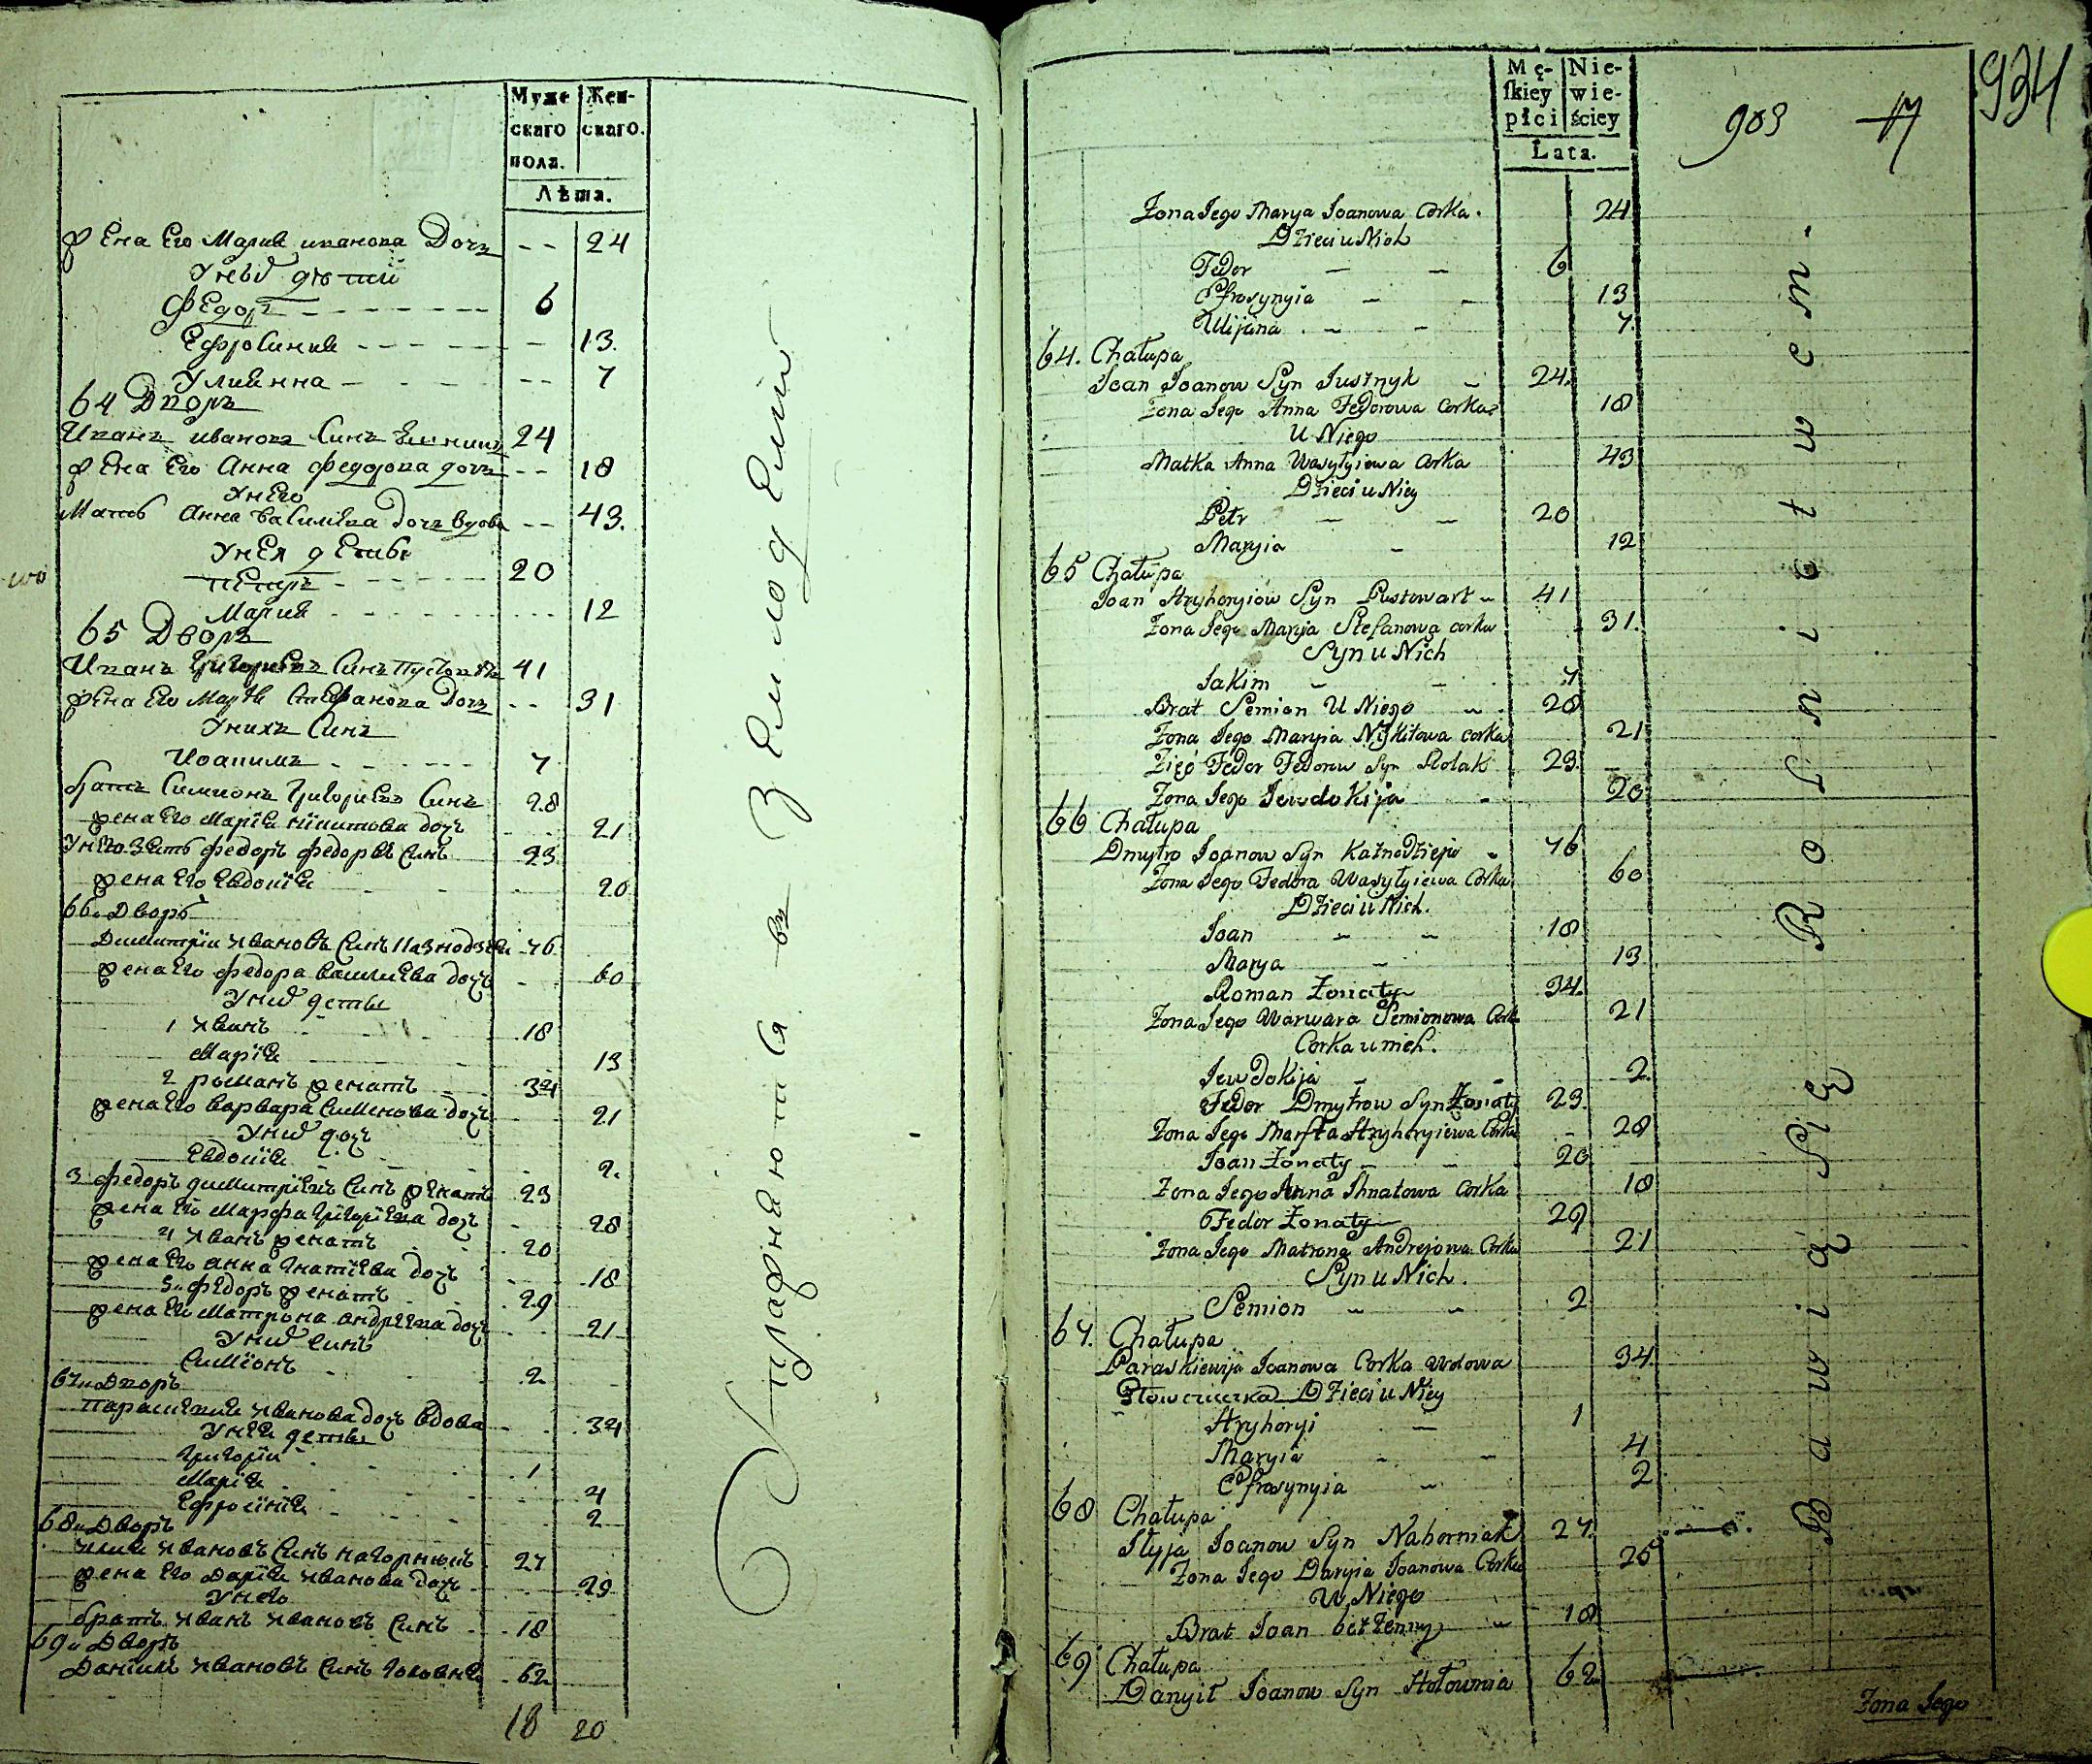 Муже
скаго
пола.
Жен-
скаго.
Лѣта.
Жена Его Мария иванова Дочь -- 24
У них дѣтей
Федоръ 6
Ефросиния 13.
Улиянна 7
64 Дворъ
Иванъ иванов Синъ 24
Жена Его Анна Федорова дочь -- 18
У него
Мать Анна Василиева дочь вдова -- 43.
У нея дети
петръ 20
Мария 12
65 Дворъ
Иванъ Григориевъ Синъ 41
Жена Его Мария Стефанова Дочь -- 31
У нихъ Синъ
Иоакимъ 7
братъ Симионъ Григориевъ Синъ 28
жена его Марїя никитова дочь 21
У него зять федоръ федоровъ синъ 23
жена его Евдокїя 20
66. Дворъ
Димитрїи Ивановъ Синъ Казнодзѣи 76
жена Его федора василиева дочь 60
У них дети
1 Иванъ 18
Марїя 13
2 романъ женатъ 34
жена Его варвара Сименова дочь 21
У них дочь
Евдокїя 2.
3 федоръ димитрїевъ Синъ женатъ 23
жена Его Марфа григорїева дочь 28
4 Иванъ женатъ 20
жена Его анна Игнатїева дочь 18
5. федоръ женатъ 29
жена Его Матрона андрїева дочь 21
У них Синъ
Симїонъ 2
67. Дворъ
параскевия Иванова дочь вдова 34
У нея дети
Григорїи 1
Марїя 4
Ефросїнїя 2
68. Дворъ
Илия Ивановъ Синъ нагорный 27
жена Его Дарїя Иванова дочь 25
У него
братъ Иванъ Ивановъ Синъ 18
69. Дворъ
Данїилъ Ивановъ Синъ Головня 62
18 20
Упражняются въ Земледелии
Mę-
ſkiey
płci
Nie-
wie-
ściey
Lata.
903 17
934
Zona Jego Marya Joanowa Corka. 24
Dzieci u Nich
Fedor 6
Efrosynyia 13
Ulijana 7.
64. Chałupa
Joan Joanow Syn 24.
Zona Jego Anna Fedorowa Corka 18
U Niego
Matka Anna Wasyłyiowa Corka 43
Dzieci u Niey
Petr 20
Maryia 12
65 Chałupa
Joan Hryhoryiow Syn Pustowart 41
Zona Jego Maryia Stefanowa corka 31.
Syn u Nich
Jakim 7.
Brat Semion U Niego 28
Zona Jego Maryia Nykitowa corka 21
Zięć Fedor Fedorow Syn 23.
Zona Jego Jewdokija 20
66 Chałupa
Dmytro Joanow Syn Kaznodzieja 76
Zona Jego Fedora Wasyłyiewa Corka 60
Dzieci u Nich.
Joan 18
Marya 13
Roman Żonaty 34.
Zona Jego Warwara Semionowa Cork 21
Corka u nich.
Jewdokija 2.
Fedor Dmytrow Syn Żonaty 23.
Zona Jego Marfta Hryhoryiewa Corka 28
Joan Żonaty 20
Zona Jego Anna Ihnatowa Corka 18
Fedor Żonaty 29
Zona Jego Matrona Andrejowa Corka 21
Syn u Nich.
Semion 2
67. Chałupa
Paraskiewija Joanowa Corka Wdowa 34
Dzieci u Niey
Hryhoryi 1
Maryia 4
Efrosynyia 2
68 Chałupa
Ilyja Joanow Syn Nahorniak 27.
Zona Jego Daryia Joanowa Corka 25
U Niego
Brat Joan bezżenny 18
69 Chałupa
Danyił Joanow Syn Hołownia 62
Zona Jego
Bawią Się Rolnictwem.